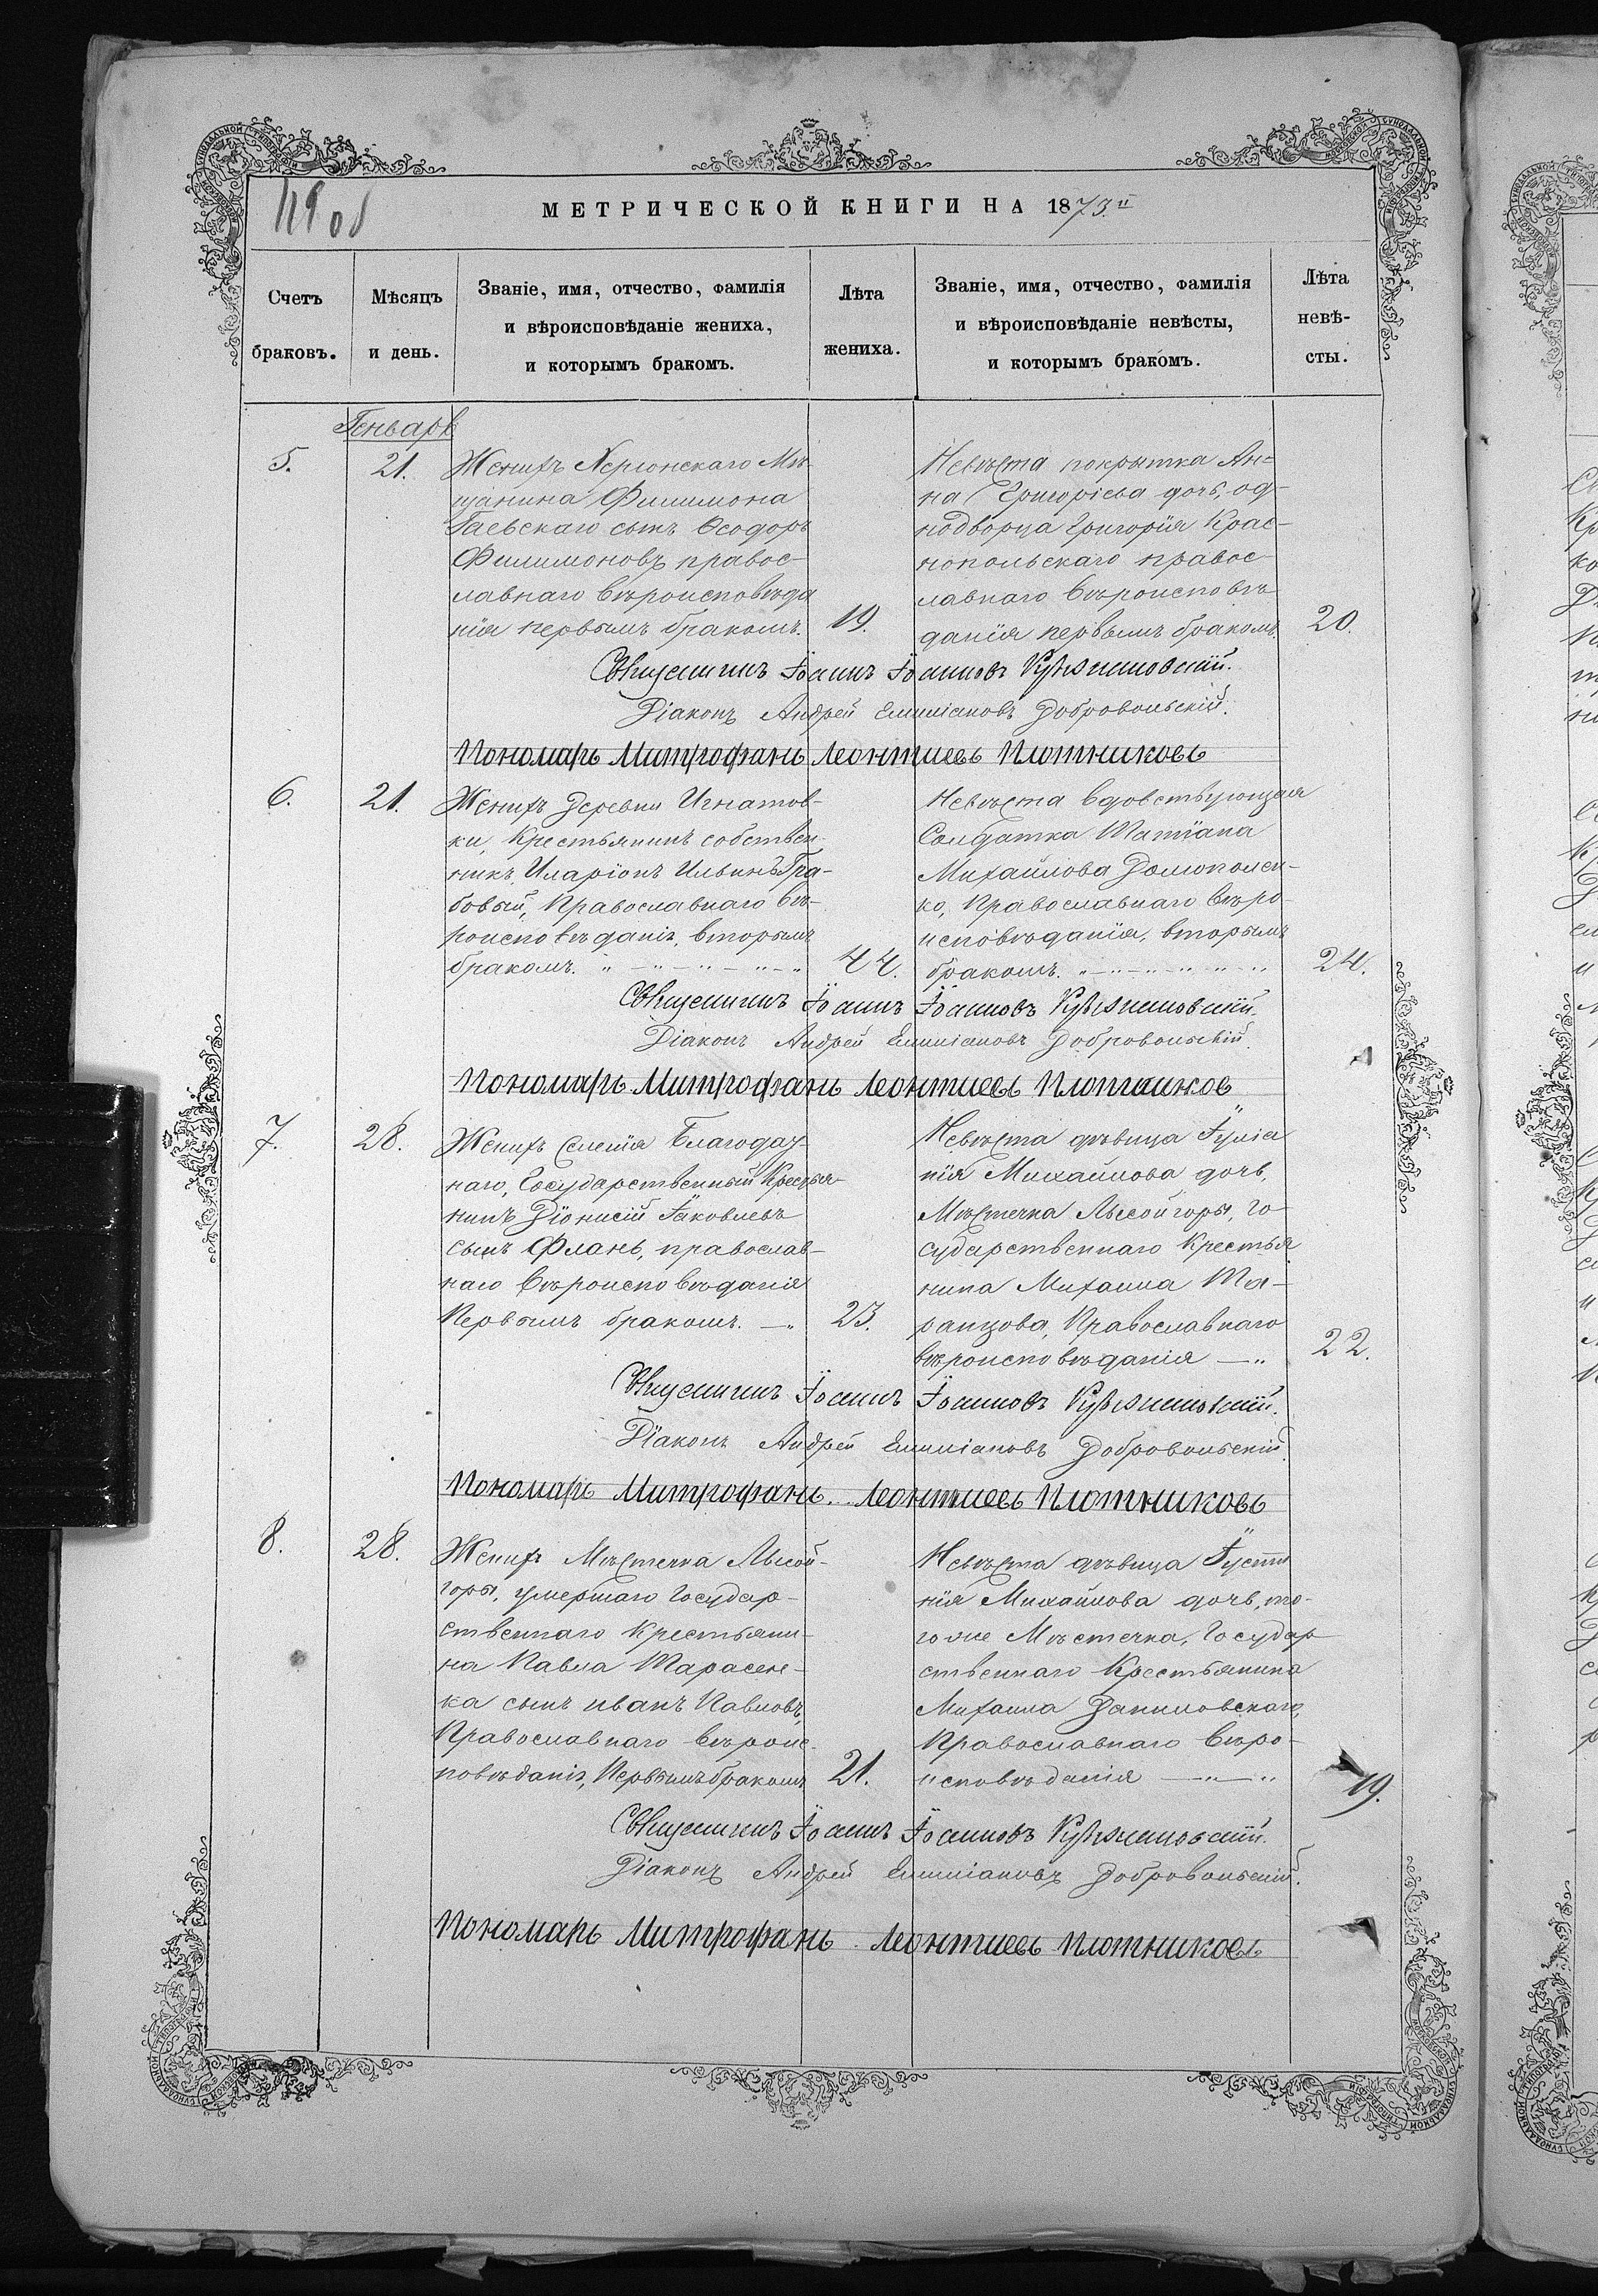 МЕТРИЧЕСКОЙ КНИГИ НА 1873.
Счетъ браковъ.
Мѣсяцъ и день.
Званіе, имя, отчество, фамилія
и вѣроисповѣданіе жениха,
и которымъ бракомъ.
Лѣта жениха.
Званіе, имя, отчество, фамилія
и вѣроисповѣданіе невѣсты,
и которымъ бракомъ.
Лѣта невѣ-
сты.
Генварь
5.
21.
Женихъ Херсонскаго Мѣ-
щанина Филимона
Гаевскаго сынъ Ѳеодоръ
Филимоновъ правос-
лавнаго вѣроисповѣда
нія первымъ бракомъ.
19.
Невѣста покрытка Ан=
на Григоріева дочь, од-
нодворца Григорія Крас-
нопольскаго правос
лавнаго вѣроисповѣ
данія первымъ бракомъ.
20.
Священникъ Іоаннъ Іоанновъ
Діаконъ Андрей Емиліановъ Добровольскій.
Пономарь Митрофанъ Леонтиевъ Плотниковъ
6.
21.
Женихъ Деревни Игнатов-
ки, Крестьянинъ собствен-
никъ, Иларіонъ Ильинъ Гра-
бовый, Православнаго вѣ-
роисповѣданія, вторымъ
бракомъ.
44.
Невѣста вдовствующая
Солдатка Татіана
Михайлова Домополен-
ко, Православнаго вѣро-
исповѣданія, вторымъ
бракомъ.
24.
Священникъ Іоаннъ Іоанновъ
Діаконъ Андрей Емиліановъ Добровольскій.
Пономарь Митрофанъ Леонтиевъ Плотников
7.
28.
Женихъ Селенія Благодат-
наго, Государственный Крестья-
нинъ Діонисій Іаковлевъ
сынъ Фланъ, православ-
наго вѣроисповѣданія
Первымъ бракомъ.
23.
Невѣста дѣвица Іуліа
нія Михайлова дочь,
Мѣстечка Лысой горы, Го
сударственнаго Крестья
нина Михаила Та-
ранцова, Православнаго
вѣроисповѣданія
22.
Священникъ Іоаннъ Іоанновъ
Діаконъ Андрей Емиліановъ Добровольскій.
Пономарь Митрофанъ Леонтиевъ Плотниковъ
8.
28.
Женихъ Мѣстечка Лысой-
горы, умершаго Государ-
ственнаго Крестьяни-
на Павла Тарасен-
ка сынъ Иванъ Павловъ,
Православнаго вѣроис-
повѣданія, Первымъ бракомъ
21.
Невѣста дѣвица Іусти
нія Михайлова дочь, то-
го же Мѣстечка, Государ
ственнаго Крестьянина
Михаила Даниловскаго,
Православнаго вѣро-
исповѣданія
19.
Священникъ Іоаннъ Іоанновъ
Діаконъ Андрей Емиліановъ Добровольскій.
Пономарь Митрофанъ Леонтиевъ Плотниковъ